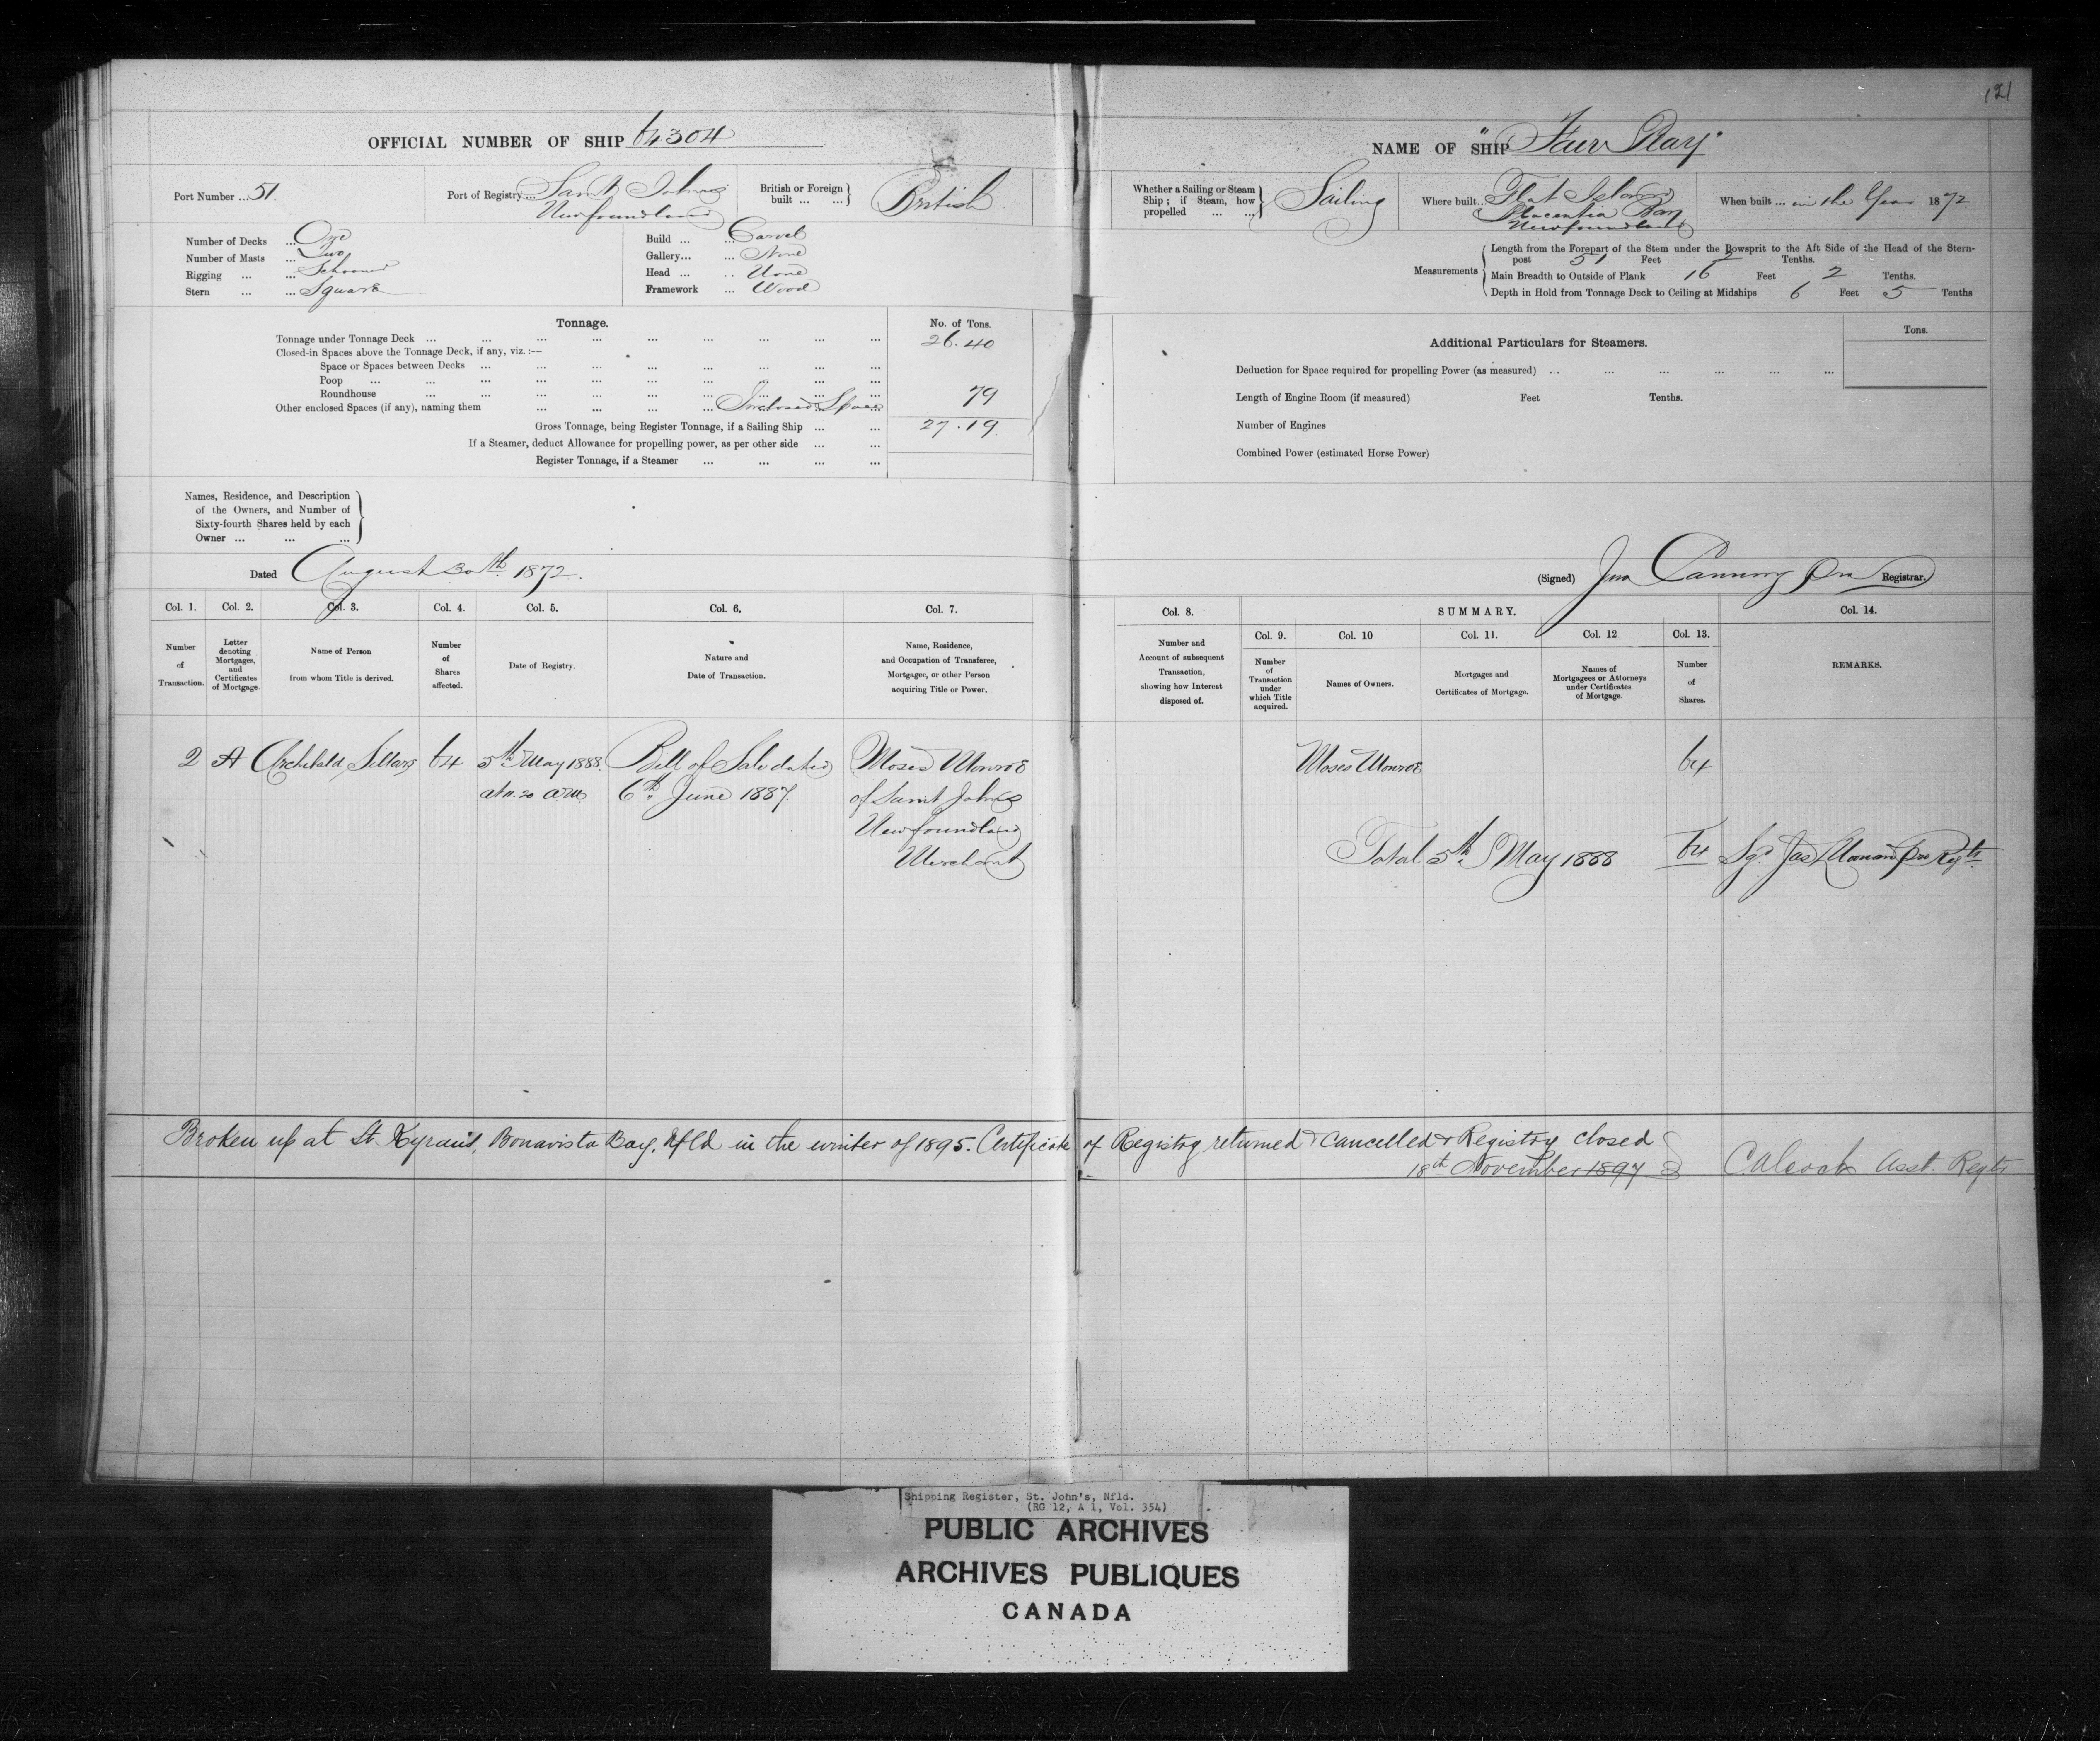 121
OFFICIAL NUMBER OF SHIP 64304
NAME OF SHIP "Fair Play"
Port Number ... 51.
Port of Registry ... Saint John's
Newfoundland
British or Foreign built ... ... British
Whether a Sailing or Steam Ship; if Steam, how propelled ... ... Sailing
Where built.. Flat Island
Placentia Bay
Newfoundland
When built ... in the Year 1872
Number of Decks ... One
Number of Masts ... Two
Rigging ... ... Schooner
Stern ... ... Square
Build ... ... Carvel
Gallery... ... None
Head ... .. None
Framework ... Wood
Measurements
Length from the Forepart of the Stem under the Bowsprit to the Aft Side of the Head of the Stern-
post 51 Feet 2 Tenths.
Main Breadth to Outside of Plank 16 Feet 2 Tenths.
Depth in Hold from Tonnage Deck to Ceiling at Midships 6 Feet 5 Tenths
Tonnage. No. of Tons.
Tonnage under Tonnage Deck ... 26.40
Closed-in Spaces above the Tonnage Deck, if any, viz. :—
Space or Spaces between Decks ...
Poop ...
Roundhouse ...
Other enclosed Spaces (if any), naming them ... Inclosed Space 79
Gross Tonnage, being Register Tonnage, if a Sailing Ship ... 27.19
If a Steamer, deduct Allowance for propelling power, as per other side ...
Register Tonnage, if a Steamer ...
Additional Particulars for Steamers. Tons.
Deduction for Space required for propelling Power (as measured) ...
Length of Engine Room (if measured) Feet Tenths.
Number of Engines
Combined Power (estimated Horse Power)
Names, Residence, and Description
of the Owners, and Number of
Sixty-fourth Shares held by each
Owner ... ... ...
Dated August 30th 1872.
(Signed) Jno Canning Pro Registrar.
Col. 1. Col. 2. Col. 3. Col. 4. Col. 5. Col. 6. Col. 7.
Number of Transaction.
Letter denoting Mortgages, and Certificates of Mortgage.
Name of Person from whom Title is derived.
Number of Shares affected.
Date of Registry.
Nature and Date of Transaction.
Name, Residence, and Occupation of Transferee, Mortgagee, or other Person acquiring Title or Power.
Col. 8. SUMMARY. Col. 14.
Col. 9. Col. 10 Col. 11. Col. 12 Col. 13.
Number and Account of subsequent Transaction, showing how Interest disposed of.
Number of Transaction under which Title acquired.
Names of Owners.
Mortgages and Certificates of Mortgage.
Names of Mortgagees or Attorneys under Certificates of Mortgage.
Number of Shares.
REMARKS.
2 A Archibald Sillars 64 5th May 1888. Bill of Sale dated Moses Monroe
at 11.20 am 6th June 1887. of Saint John's
Newfoundland
Merchant
Moses Monroe 64
Total 5th May 1888 64 Sgd. Jas Pro Regtr
Broken up at St. Kyran's, Bonavista Bay, Nfld in the winter of 1895. Certificate of Registry returned & cancelled & Registry closed
18th November 1897 Calcock Asst. Regtr
Shipping Register, St. John's, Nfld.
(RG 12, A 1, Vol. 354)
PUBLIC ARCHIVES
ARCHIVES PUBLIQUES
CANADA